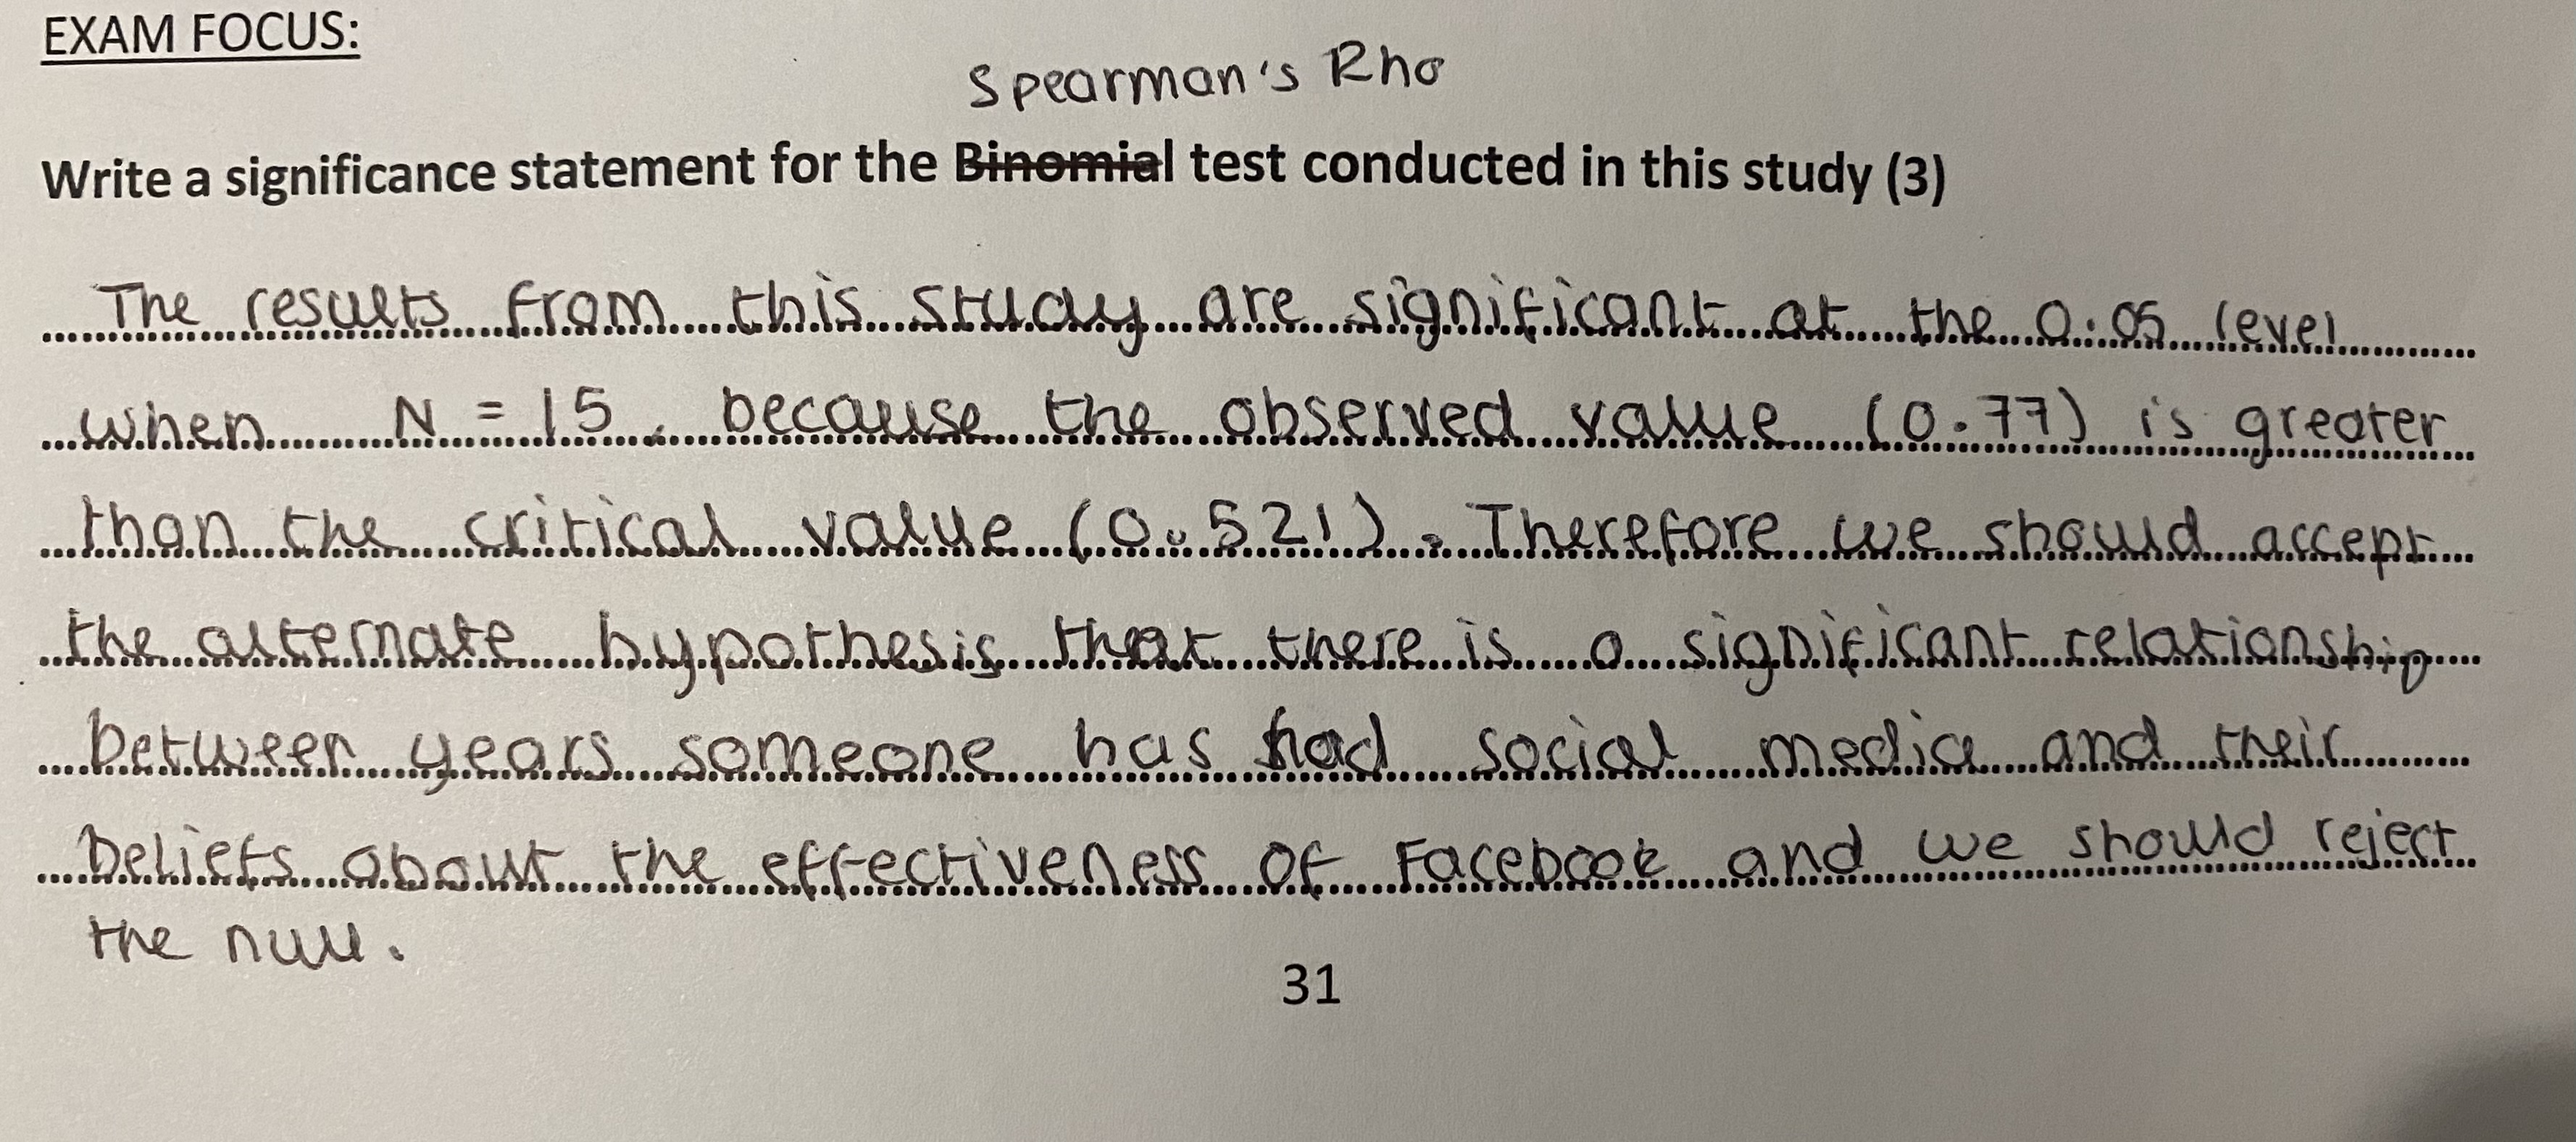 EXAM FOCUS:
Spearman's Rho
Write a significance statement for the Binomial test conducted in this study (3)
The results from this study are significant at the 0.05 level
when N = 15, because the observed value (0.77) is greater
than the critical value (0.521). Therefore we should accept
the alternate hypothesis that there is a significant relationship
between years someone has had social media and their
beliefs about the effectiveness of Facebook and we should reject
the null.
31